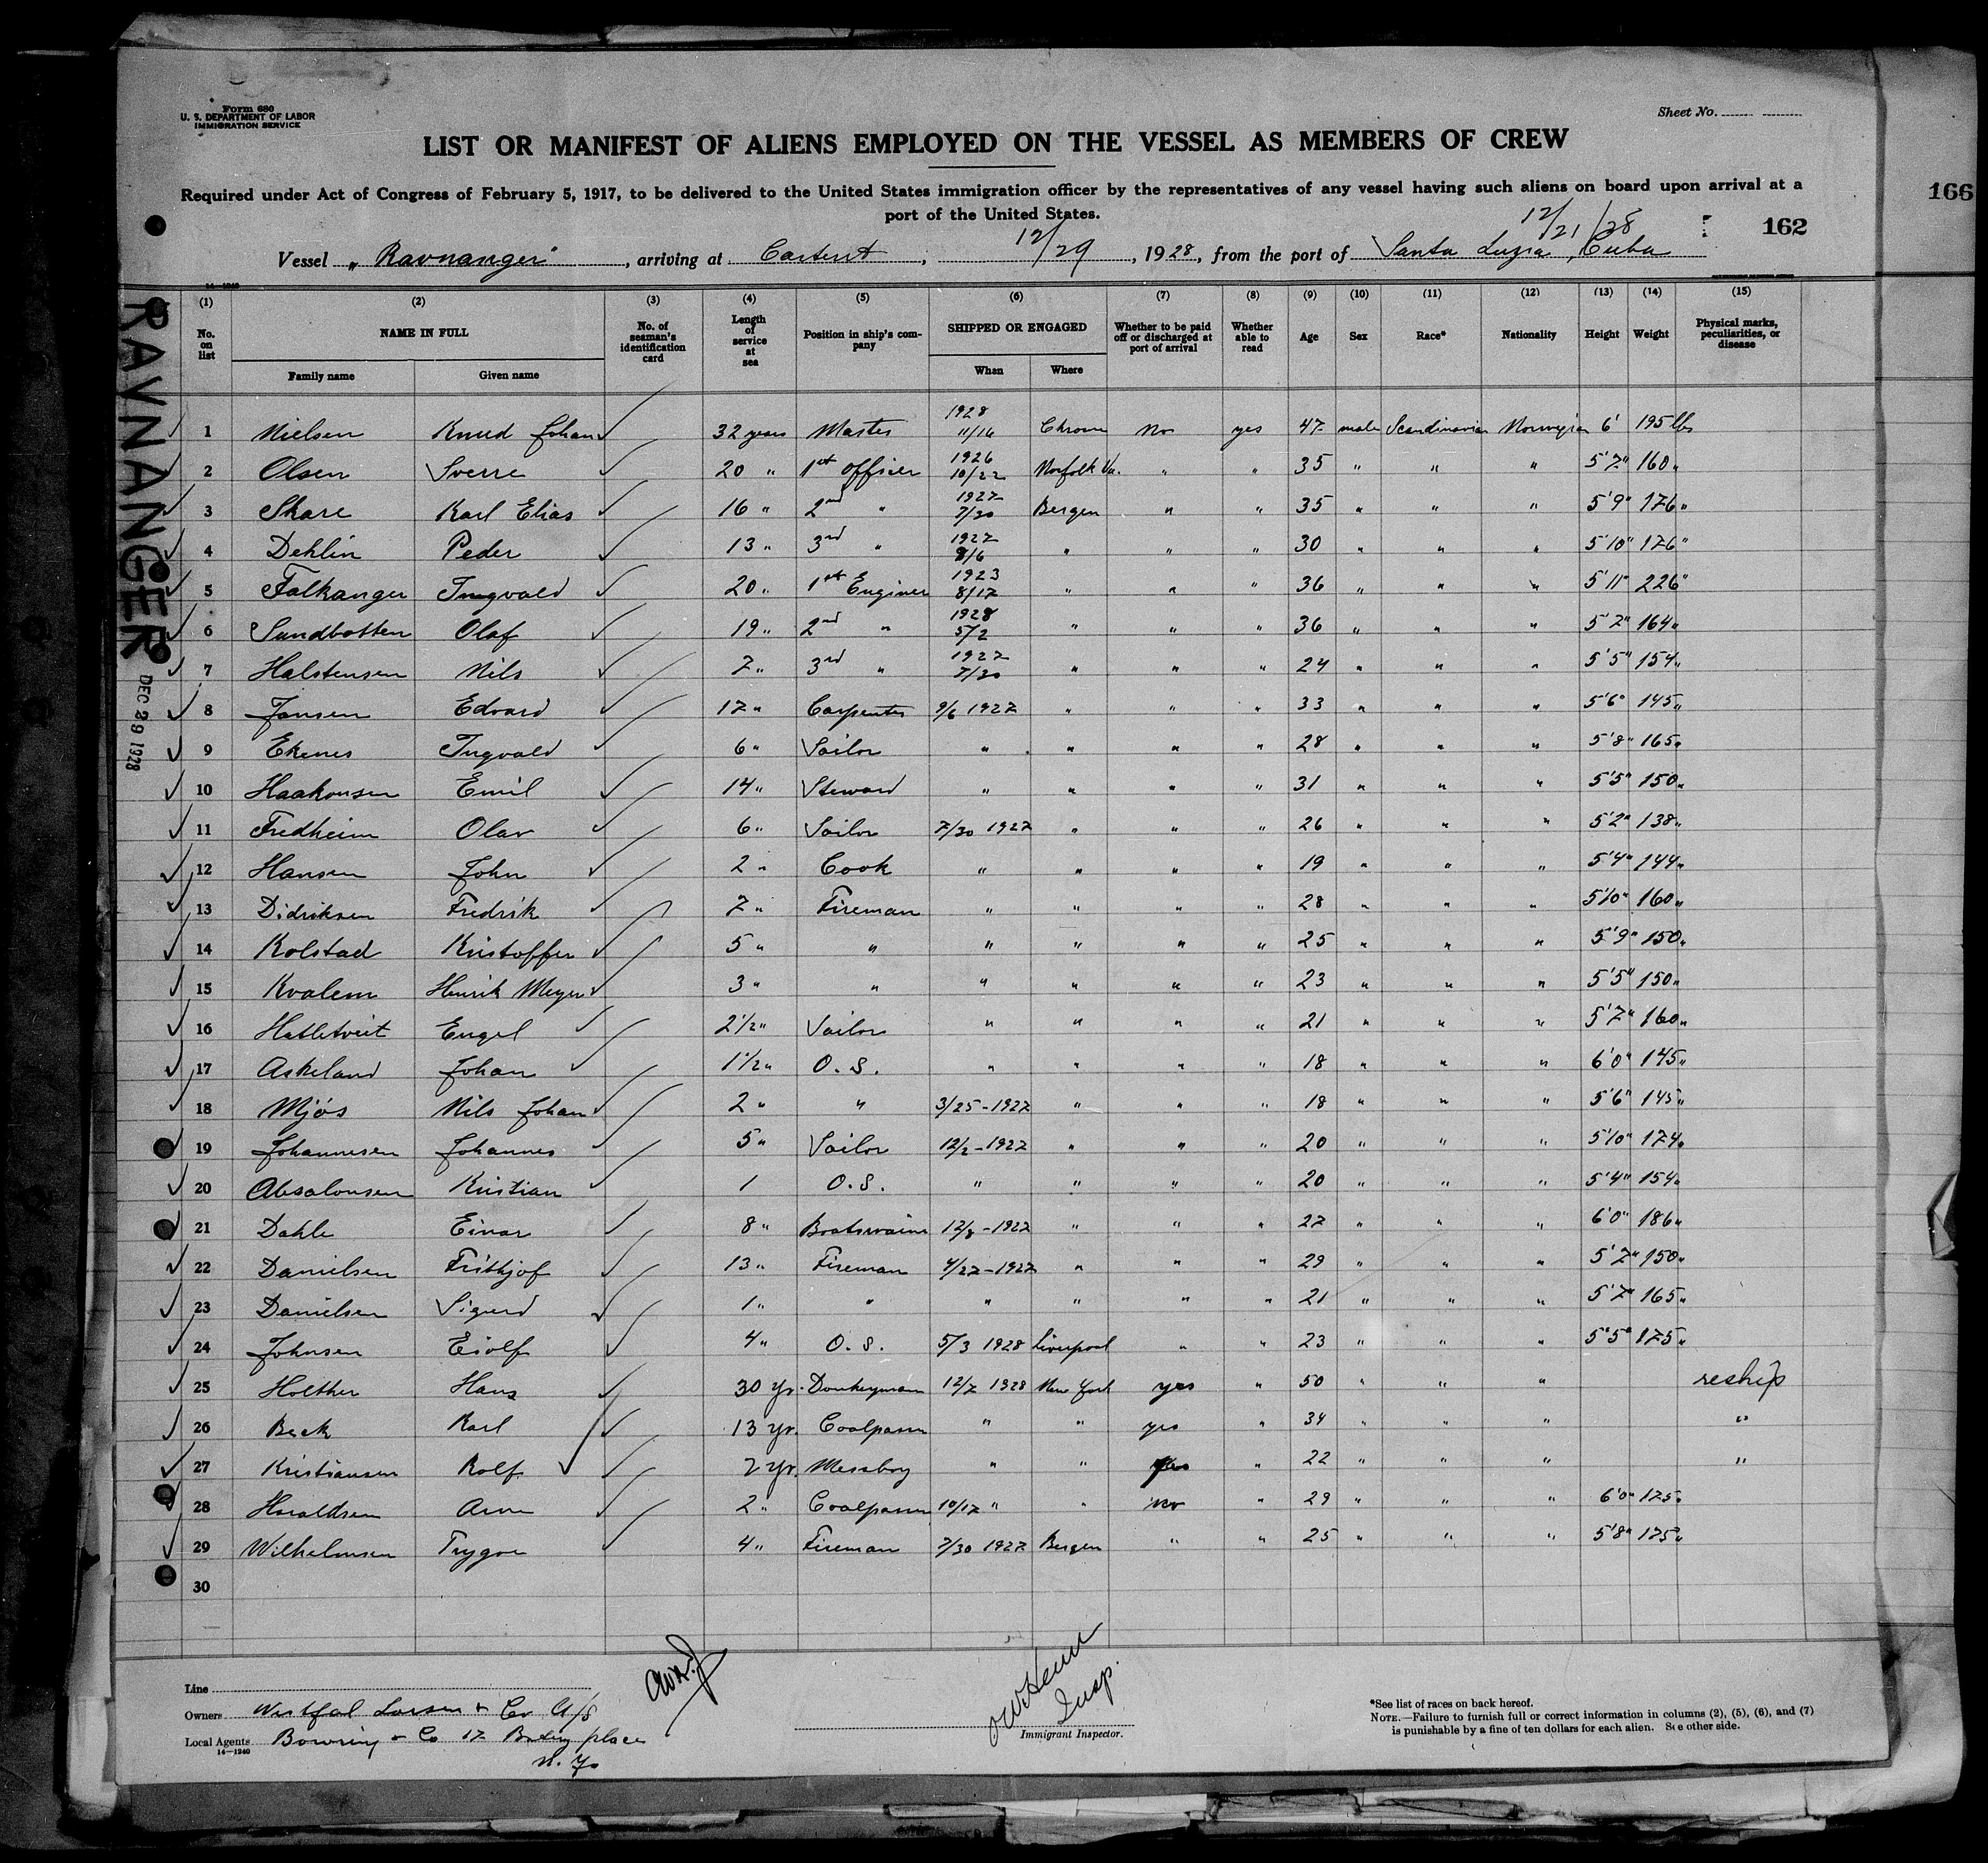 Form 680
U. S. DEPARTMENT OF LABOR
IMMIGRATION SERVICE
Sheet No.
LIST OR MANIFEST OF ALIENS EMPLOYED ON THE VESSEL AS MEMBERS OF CREW
Required under Act of Congress of February 5, 1917, to be delivered to the United States immigration officer by the representatives of any vessel having such aliens on board upon arrival at a
port of the United States.
166
162
12/21/28
Vessel „Ravnanger", arriving at Carteret, 12/29, 1928, from the port of Santa Luzia, Cuba
14—1240
RAVNANGER
DEC 29 1928
(1) (2) (3) (4) (5) (6) (7) (8) (9) (10) (11) (12) (13) (14) (15)
No. on list NAME IN FULL No. of seaman's identification card Length of service at sea Position in ship's company SHIPPED OR ENGAGED Whether to be paid off or discharged at port of arrival Whether able to read Age Sex Race* Nationality Height Weight Physical marks, peculiarities, or disease
Family name Given name When Where
1 Nielsen Knud Johan 32 years Master 1928 11/16 Chrome No yes 47 male Scandinavian Norwegian 6' 195 lbs
2 Olsen Sverre 20 " 1st officer 1926 10/22 Norfolk Va. " " 35 " " " 5'7" 160 "
3 Skare Karl Elias 16 " 2nd " 1927 7/30 Bergen " " 35 " " " 5'9" 176 "
4 Dehlin Peder 13 " 3rd " 1927 8/6 " " " 30 " " " 5'10" 176 "
5 Falkanger Ingvald 20 " 1st Enginer 1923 8/17 " " " 36 " " " 5'11" 226 "
6 Sundbotten Olaf 19 " 2nd " 1928 5/2 " " " 36 " " " 5'7" 164 "
7 Halstensen Nils 7 " 3rd " 1927 7/30 " " " 24 " " " 5'5" 154 "
8 Jansen Edvard 17 " Carpenter 9/6 1927 " " " 33 " " " 5'6" 145 "
9 Ekenes Ingvald 6 " Sailor " " " " 28 " " " 5'8" 165 "
10 Haakonsen Emil 14 " Steward " " " " 31 " " " 5'5" 150 "
11 Fredheim Olav 6 " Sailor 7/30 1927 " " " 26 " " " 5'2" 138 "
12 Hansen John 2 " Cook " " " " 19 " " " 5'4" 144 "
13 Didriksen Fredrik 7 " Fireman " " " " 28 " " " 5'10" 160 "
14 Kolstad Kristoffer 5 " " " " " " 25 " " " 5'9" 150 "
15 Kvalem Henrik Meyer 3 " " " " " " 23 " " " 5'5" 150 "
16 Hatletveit Engel 2 1/2 " Sailor " " " " 21 " " " 5'7" 160 "
17 Askeland Johan 1 1/2 " O. S. " " " " 18 " " " 6'0" 145 "
18 Mjøs Nils Johan 2 " " 3/25-1927 " " " 18 " " " 5'6" 145 "
19 Johannesen Johannes 5 " Sailor 12/2-1927 " " " 20 " " " 5'10" 174 "
20 Absalonsen Kristian 1 O. S. " " " " 20 " " " 5'4" 154 "
21 Dahle Einar 8 " Boatswain 12/8-1927 " " " 27 " " " 6'0" 186 "
22 Danielsen Frithjof 13 " Fireman 4/27-1927 " " " 29 " " " 5'7" 150 "
23 Danielsen Sigurd 1 " " " " " " 21 " " " 5'7" 165 "
24 Johnsen Eiolf 4 " O. S. 5/3 1928 Liverpool " " 23 " " " 5'5" 175 "
25 Holther Hans 30 yr. Donkeyman 12/7 1928 New York yes " 50 " " " reship
26 Beck Karl 13 yr. Coalpasser " " yes " 34 " " " "
27 Kristiansen Rolf 2 yr. Messboy " " yes " 22 " " " "
28 Haraldsen Arne 2 " Coalpasser 10/17 " " No " 29 " " " 6'0" 175 "
29 Wilhelmsen Trygve 4 " Fireman 7/30 1927 Bergen " " 25 " " " 5'8" 175 "
30
Line
Owners Westfal Larsen & Co A/S
Local Agents Bowring & Co 17 Battery place
N. Y.
14—1240
Insp.
Immigrant Inspector.
*See list of races on back hereof.
NOTE.—Failure to furnish full or correct information in columns (2), (5), (6), and (7)
is punishable by a fine of ten dollars for each alien. See other side.